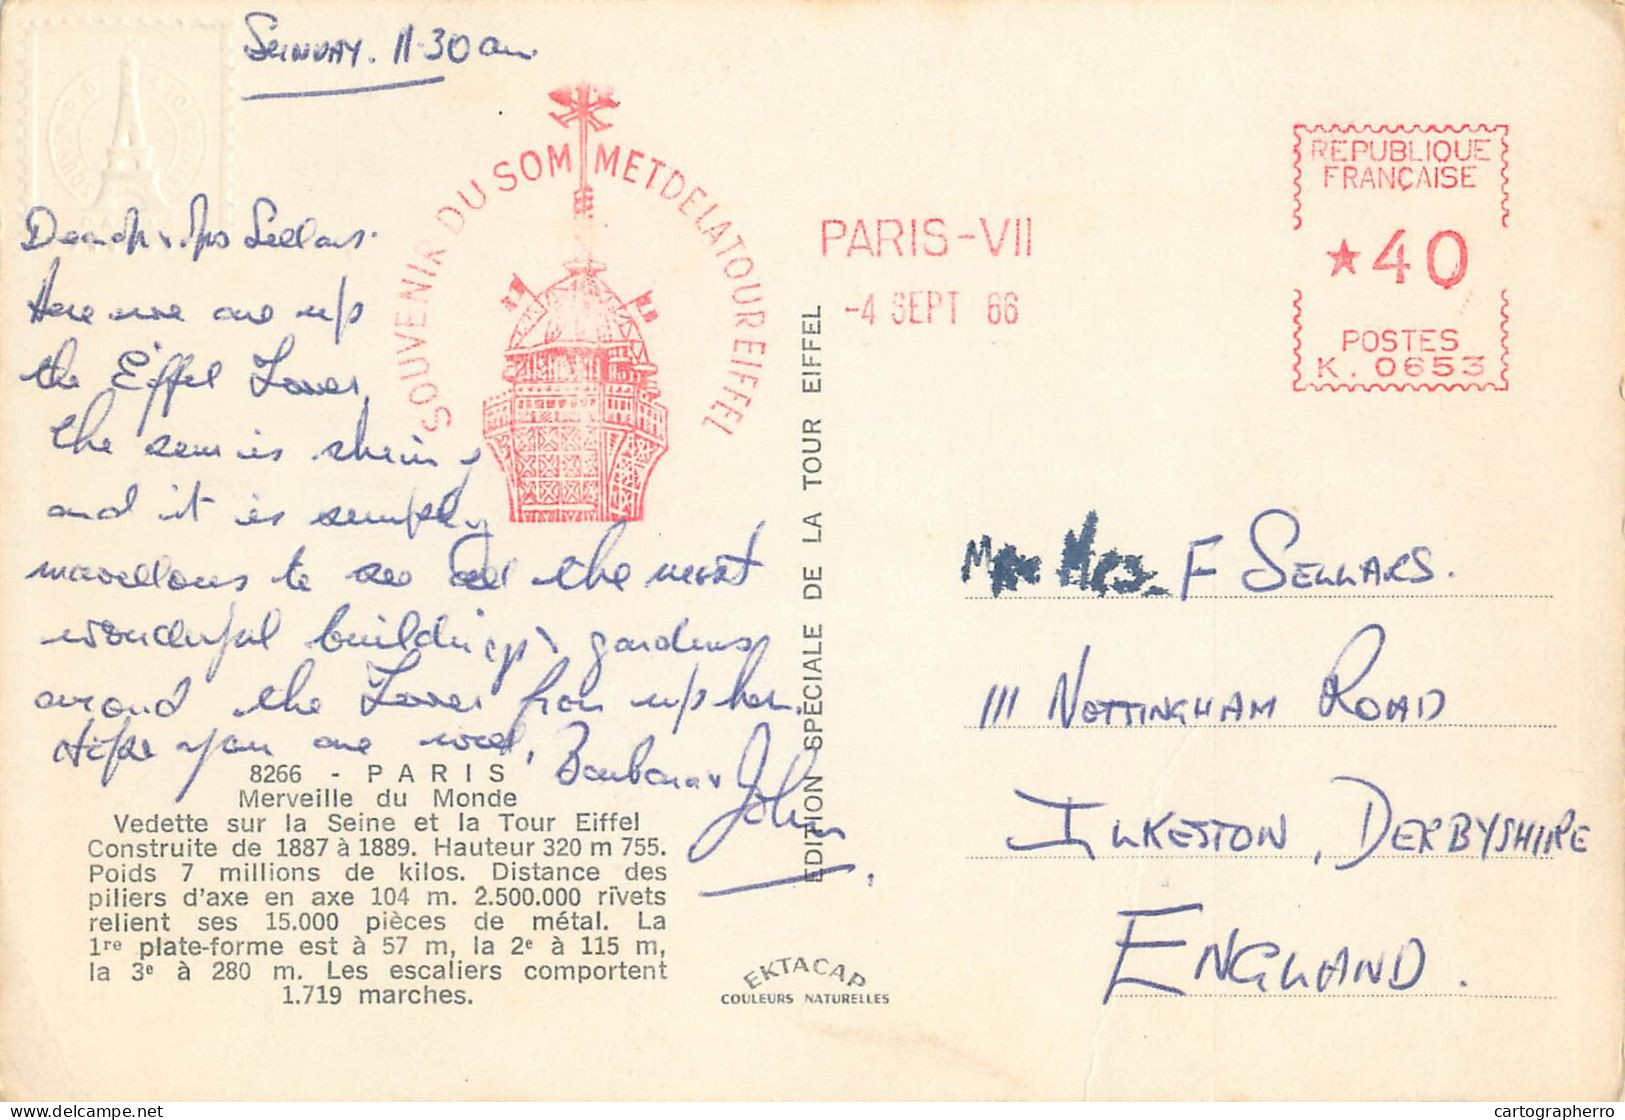 SUNDAY. 11.30 am.
Dear Mr & Mrs Sellars.
Here we are up
the Eiffel Tower,
the sun is shining
and it is simply
marvellous to see all the most
wonderful buildings & gardens
around the Tower from up here.
Hope you are well,
Barbara & John
8266 - PARIS
Merveille du Monde
Vedette sur la Seine et la Tour Eiffel
Construite de 1887 à 1889. Hauteur 320 m 755.
Poids 7 millions de kilos. Distance des
piliers d'axe en axe 104 m. 2.500.000 rivets
relient ses 15.000 pièces de métal. La
1re plate-forme est à 57 m, la 2e à 115 m,
la 3e à 280 m. Les escaliers comportent
1.719 marches.
SOUVENIR DU SOMMET DE LA TOUR EIFFEL
EDITION SPECIALE DE LA TOUR EIFFEL
EKTACAP
COULEURS NATURELLES
PARIS-VII
-4 SEPT 66
REPUBLIQUE
FRANÇAISE
★40
POSTES
K. 0653
Mrs F SELLARS.
111 NOTTINGHAM ROAD
ILKESTON, DERBYSHIRE
ENGLAND.
delcampe.net
cartographerro